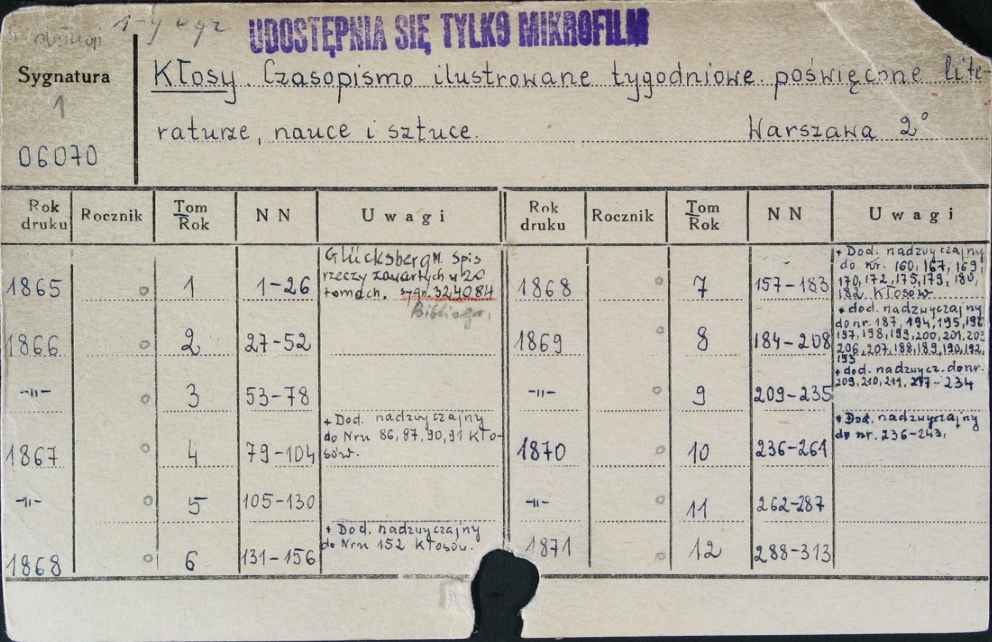 1-y egz
UDOSTĘPNIA SIĘ TYLKO MIKROFILM
Sygnatura
1
06070
Kłosy. Czasopismo ilustrowane tygodniowe poświęcone lite-
raturze, nauce i sztuce. Warszawa 2°
Rok druku Rocznik Tom Rok NN Uwagi Rok druku Rocznik Tom Rok NN Uwagi
1865 1 1-26 Glücksberg M. Spis
rzeczy zawartych w 20
tomach. sygn. 324084
Bibliogr.
1868 7 157-183 + Dod. nadzwyczajny
do nr. 160, 167, 169,
170, 172, 175, 179, 180,
182 Kłosów
1866 2 27-52
1869 8 184-208 + dod. nadzwyczajny
do nr 187, 194, 195, 196
197, 198, 199, 200, 201, 203
206, 207, 188, 189, 190, 192,
193
-"- 3 53-78
-"- 9 209-235 + dod. nadzwycz. do nr.
209, 210, 211, 217-234
1867 4 79-104 + Dod. nadzwyczajny
do Nru 86, 87, 90, 91 Kło-
sów.
1870 10 236-261 + Dod. nadzwyczajny
do nr. 236-243.
-"- 5 105-130
-"- 11 262-287
1868 6 131-156 + Dod. nadzwyczajny
do Nru 152 Kłosów.
1871 12 288-313